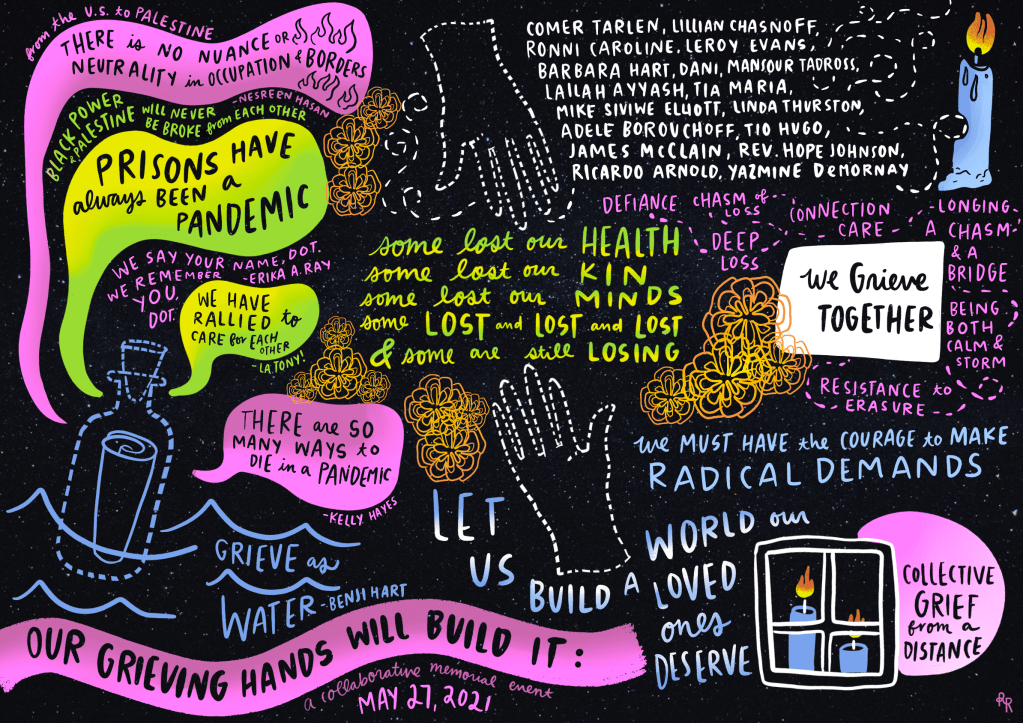 from the U.S. to PALESTINE
THERE is NO NUANCE OR
NEUTRALITY in OCCUPATION & BORDERS
-NESREEN HASAN
BLACK POWER
& PALESTINE WILL NEVER
BE BROKE from EACH OTHER
PRISONS HAVE
always BEEN a
PANDEMIC
WE SAY YOUR NAME, DOT.
WE REMEMBER
-ERIKA A. RAY
YOU,
DOT.
WE HAVE
RALLIED to
CARE for EACH
OTHER
-LA TONY!
THERE are SO
MANY WAYS to
DIE in a PANDEMIC
-KELLY HAYES
GRIEVE as
WATER -BENJI HART
COMER TARLEN, LILLIAN CHASNOFF,
RONNI CAROLINE, LEROY EVANS,
BARBARA HART, DANI, MANSOUR TADROSS,
LAILAH AYYASH, TIA MARIA,
MIKE SIVIWE ELLIOTT, LINDA THURSTON,
ADELE BOROUCHOFF, TIO HUGO,
JAMES McCLAIN, REV. HOPE JOHNSON,
RICARDO ARNOLD, YAZMINE DeMORNAY
some lost our HEALTH
some lost our KIN
some lost our MINDS
some LOST and LOST and LOST
& some are still LOSING
DEFIANCE
CHASM of
LOSS
DEEP
LOSS
CONNECTION
CARE
LONGING
A CHASM
& A
BRIDGE
BEING
BOTH
CALM &
STORM
RESISTANCE to
ERASURE
we Grieve
TOGETHER
we MUST HAVE the COURAGE to MAKE
RADICAL DEMANDS
LET
US
BUILD A
WORLD our
LOVED
ones
DESERVE
COLLECTIVE
GRIEF
from a
DISTANCE
OUR GRIEVING HANDS WILL BUILD IT:
a collaborative memorial event
MAY 27, 2021
RR